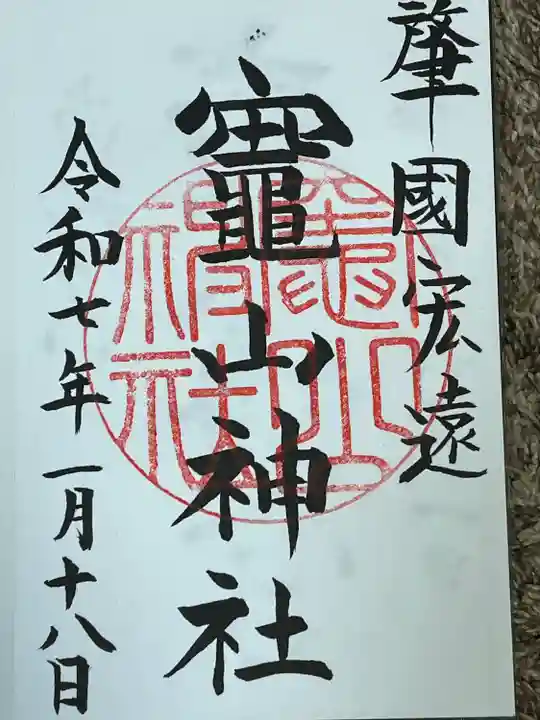 肇國宏遠
竈山神社
令和七年一月十八日